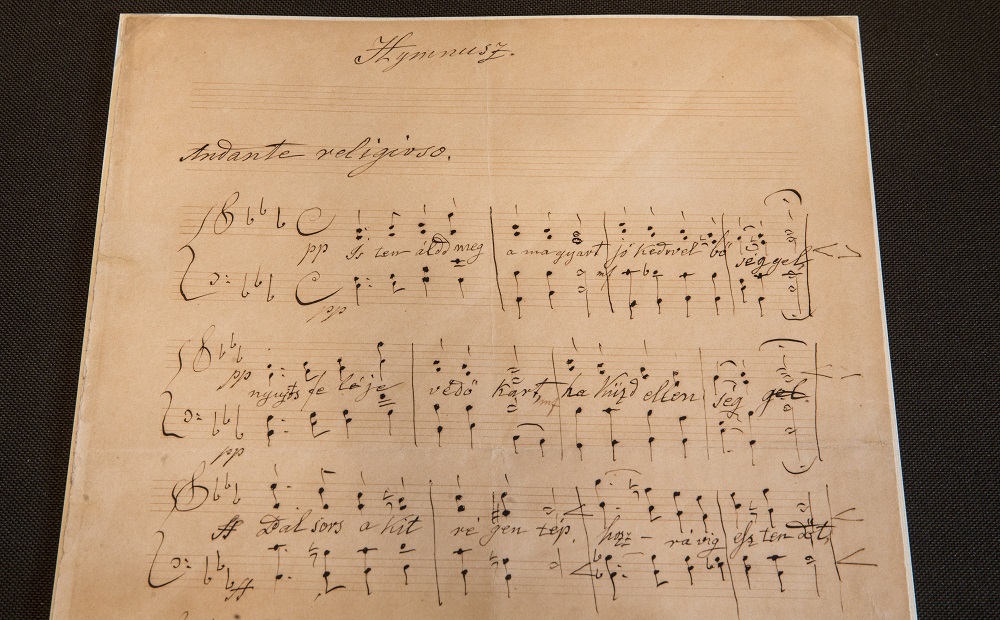 Hymnusz.
Andante religioso.
pp Is ten áldd meg a magyart jó kedvel bő séggel
pp
pp nyujts fe léje védő kart, mf ha küzd ellen seg gel.
pp
ff Bal sors a kit ré gen tép, hozz - rá vig esz ten dőt,
ff